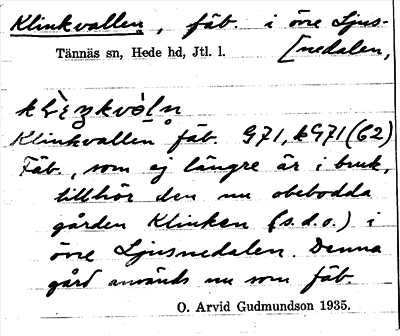 Klinkvallen, fäb. i övre Ljus-
Tännäs sn, Hede hd, Jtl. l. [nedalen,
Klinkvallen fäb. G71, kG71(62)
Fäb., som ej längre är i bruk,
tillhör den nu obebodda
gården Klinken (s.d.o.) i
övre Ljusnedalen. Denna
gård används nu som fäb.
O. Arvid Gudmundson 1935.